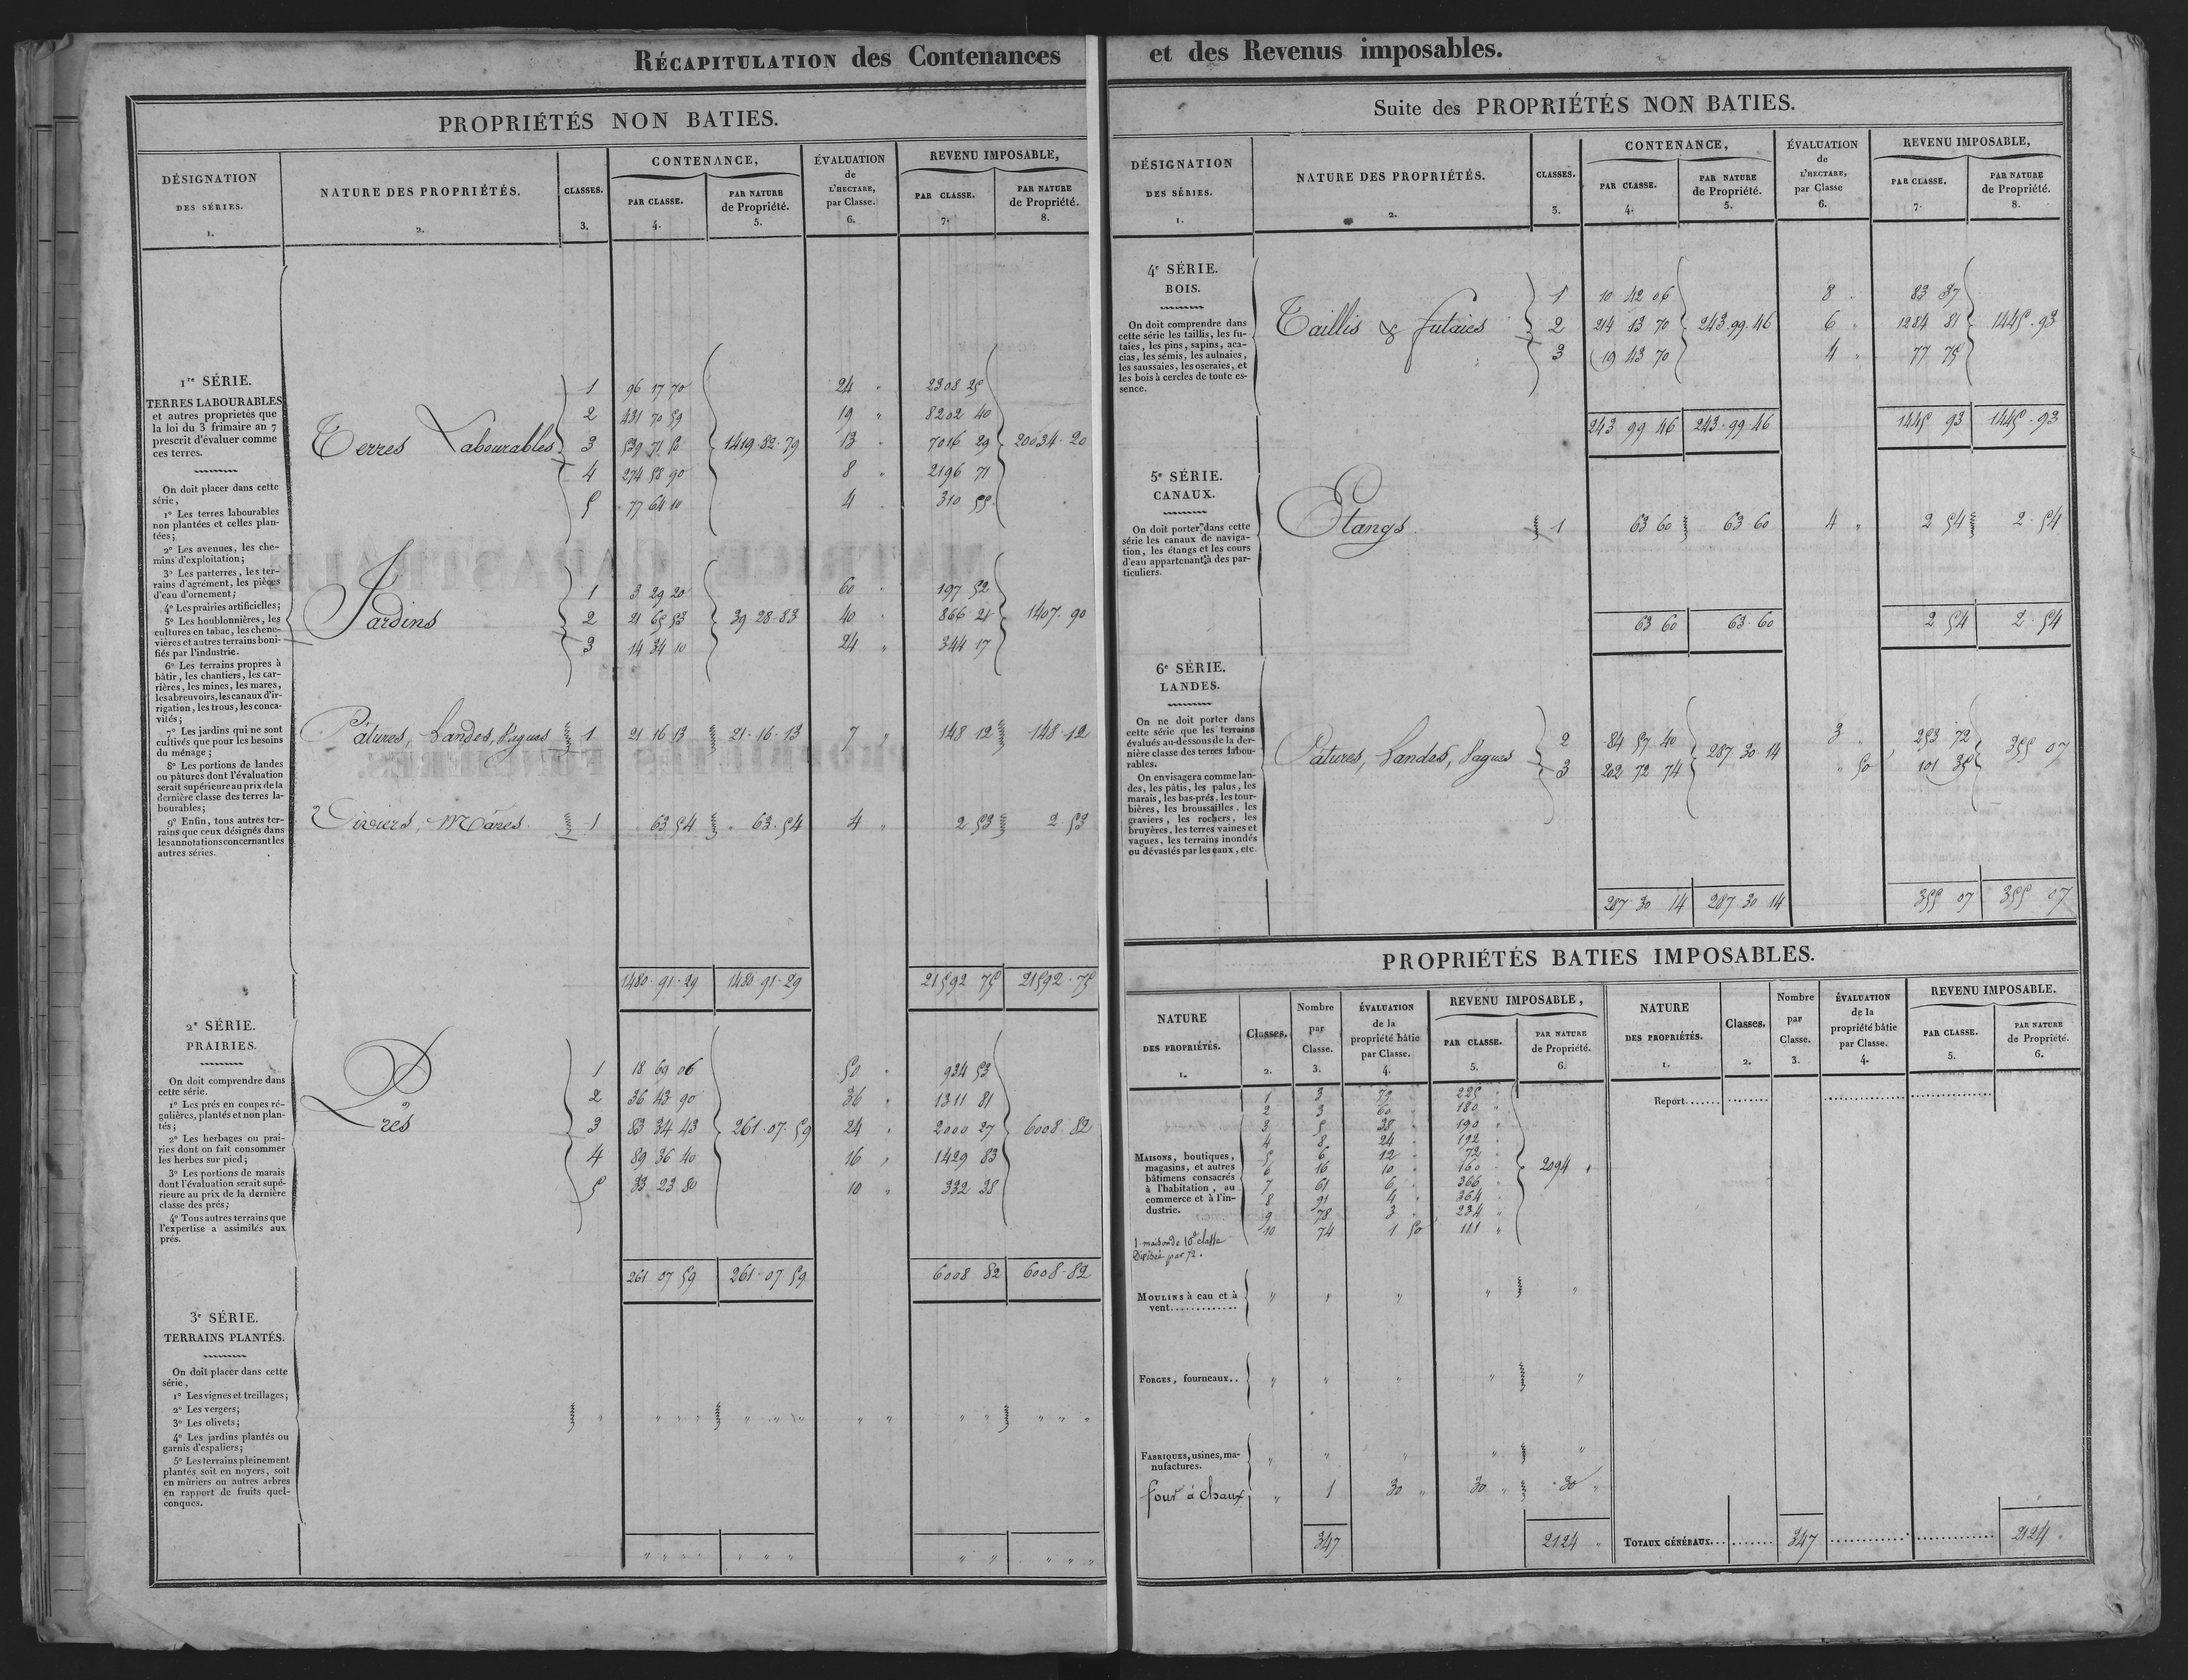 RÉCAPITULATION des Contenances et des Revenus imposables.
PROPRIÉTÉS NON BATIES.
DÉSIGNATION DES SÉRIES. 1.
NATURE DES PROPRIÉTÉS. 2.
CLASSES. 3.
CONTENANCE,
PAR CLASSE. 4.
PAR NATURE de Propriété. 5.
ÉVALUATION de L'HECTARE, par Classe. 6.
REVENU IMPOSABLE,
PAR CLASSE. 7.
PAR NATURE de Propriété. 8.
1re SÉRIE.
TERRES LABOURABLES
et autres proprietés que
la loi du 3 frimaire an 7
prescrit d'évaluer comme
ces terres.
On doit placer dans cette
série,
1º Les terres labourables
non plantées et celles plan-
tées;
2º Les avenues, les che-
mins d'exploitation;
3º Les parterres, les ter-
rains d'agrément, les pièces
d'eau d'ornement;
4º Les prairies artificielles;
5º Les houblonnières, les
cultures en tabac, les chene-
vières et autres terrains boni-
fiés par l'industrie.
6º Les terrains propres à
bâtir, les chantiers, les car-
rières, les mines, les mares,
les abreuvoirs, les canaux d'ir-
rigation, les trous, les conca-
vités;
7º Les jardins qui ne sont
cultivés que pour les besoins
du ménage;
8º Les portions de landes
ou pâtures dont l'évaluation
serait supérieure au prix de la
dernière classe des terres la-
bourables;
9º Enfin, tous autres ter-
rains que ceux désignés dans
les annotations concernant les
autres séries.
Terres Labourables
1 96 17 70 24 " 2308 25
2 431 70 59 19 " 8202 40
3 539 71 50 1419.82.79 13 " 7016 29 20034.20
4 274 58 90 8 " 2196 71
5 77 64 10 4 " 310 55
Jardins
1 3 29 20 60 " 197 52
2 21 65 53 39.28.83 40 " 866 21 1407.90
3 14 34 10 24 " 344 17
Pâtures, Landes, Vagues 1 21 16 13 21.16.13 7 " 148 12 148.12
Viviers, Mares. 1 63 54 63.54 4 " 2 53 2.53
1480.91.29 1480.91.29 21592 75 21592.75
2e SÉRIE.
PRAIRIES.
On doit comprendre dans
cette série.
1º Les prés en coupes ré-
gulières, plantés et non plan-
tés;
2º Les herbages ou prai-
ries dont on fait consommer
les herbes sur pied;
3º Les portions de marais
dont l'évaluation serait supé-
rieure au prix de la dernière
classe des prés;
4º Tous autres terrains que
l'expertise a assimilés aux
prés.
Prés
1 18 69 06 50 " 934 53
2 36 43 90 36 " 1311 81
3 83 34 43 261.07.59 24 " 2000 27 6008.82
4 89 36 40 16 " 1429 83
5 33 23 80 10 " 332 38
261 07 59 261.07 59 6008 82 6008.82
3e SÉRIE.
TERRAINS PLANTÉS.
On doit placer dans cette
série,
1º Les vignes et treillages;
2º Les vergers;
3º Les olivets;
4º Les jardins plantés ou
garnis d'espaliers;
5º Les terrains pleinement
plantés soit en noyers, soit
en mûriers ou autres arbres
en rapport de fruits quel-
conques.
Suite des PROPRIÉTÉS NON BATIES.
DÉSIGNATION DES SÉRIES. 1.
NATURE DES PROPRIÉTÉS. 2.
CLASSES. 3.
CONTENANCE,
PAR CLASSE. 4.
PAR NATURE de Propriété. 5.
ÉVALUATION de L'HECTARE, par Classe 6.
REVENU IMPOSABLE,
PAR CLASSE. 7.
PAR NATURE de Propriété. 8.
4e SÉRIE.
BOIS.
On doit comprendre dans
cette série les taillis, les fu-
taies, les pins, sapins, aca-
cias, les sémis, les aulnaies,
les saussaies, les oseraies, et
les bois à cercles de toute es-
sence.
Taillis & futaies
1 10 42 06 8 " 83 37
2 214 13 70 243.99.46 6 " 1284 81 1445.93
3 19 43 70 4 " 77 75
243 99 46 243.99.46 1445 93 1445.93
5e SÉRIE.
CANAUX.
On doit porter dans cette
série les canaux de naviga-
tion, les étangs et les cours
d'eau appartenant à des par-
ticuliers.
Etangs. 1 63 60 63 60 4 " 2 54 2.54
63 60 63.60 2 54 2.54
6e SÉRIE.
LANDES.
On ne doit porter dans
cette série que les terrains
évalués au-dessous de la der-
nière classe des terres labou-
rables.
On envisagera comme lan-
des, les pâtis, les palus, les
marais, les bas-prés, les tour-
bières, les broussailles, les
graviers, les rochers, les
bruyères, les terres vaines et
vagues, les terrains inondés
ou dévastés par les eaux, etc.
Pâtures, Landes, Vagues
2 84 57 40 287.30.14 3 " 253 72 355 07
3 202 72 74 " 50 101 35
287.30 14 287.30 14 355 07 355 07
PROPRIÉTÉS BATIES IMPOSABLES.
NATURE DES PROPRIÉTÉS. 1.
Classes. 2.
Nombre par Classe. 3.
ÉVALUATION de la propriété bâtie par Classe. 4.
REVENU IMPOSABLE,
PAR CLASSE. 5.
PAR NATURE de Propriété. 6.
NATURE DES PROPRIÉTÉS. 1.
Classes. 2.
Nombre par Classe. 3.
ÉVALUATION de la propriété bâtie par Classe. 4.
REVENU IMPOSABLE.
PAR CLASSE. 5.
PAR NATURE de Propriété. 6.
MAISONS, boutiques,
magasins, et autres
bâtimens consacrés
à l'habitation, au
commerce et à l'in-
dustrie.
1 3 75 " 225 "
2 3 60 " 180 "
3 5 38 " 190 "
4 8 24 " 192 "
5 6 12 " 72 "
6 16 10 " 160 " 2094 "
7 61 6 " 366 "
8 91 4 " 364 "
9 78 3 " 234 "
10 74 1 50 111 "
1 maison de 10e classe
Divisée par 72.
MOULINS à eau et à
vent.............
FORGES, fourneaux..
FABRIQUES, usines, ma-
nufactures.
four à chaux " 1 30 " 30 " 30 "
347 2124 "
Report.......
TOTAUX GÉNÉRAUX... 347 2124.